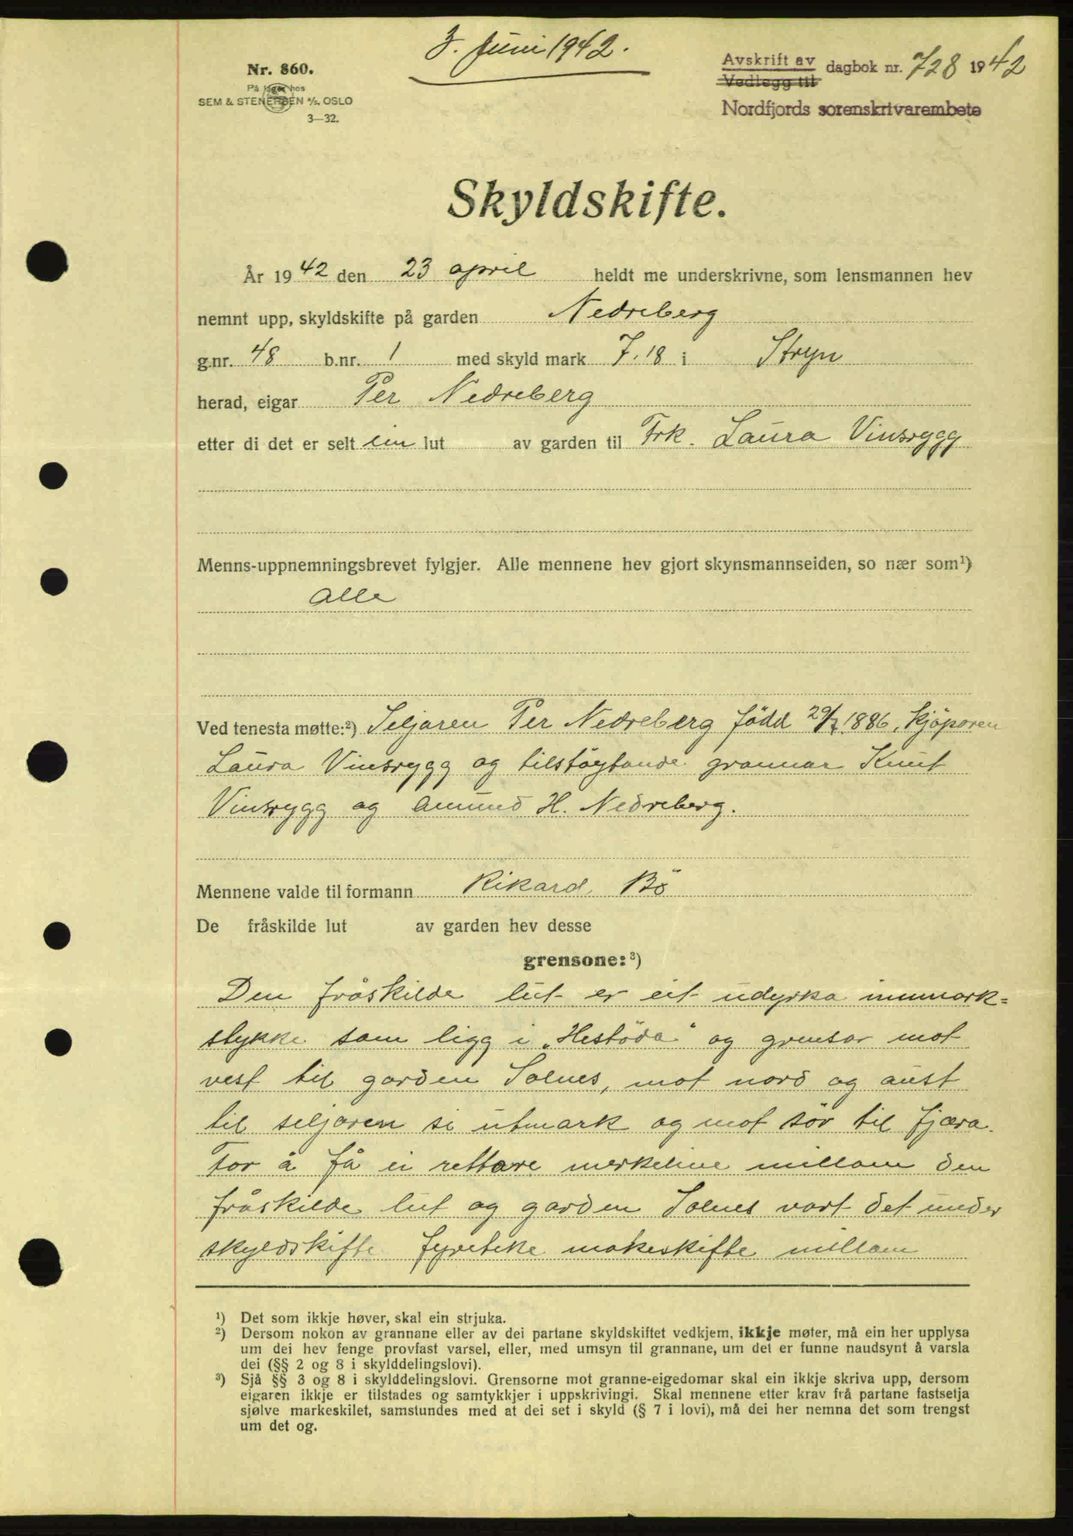 3. Juni 1942.
Nr. 860.
På lager hos
SEM & STENERSEN A/S, OSLO
3—32.
Avskrift av
Vedlegg til
dagbok nr. 728 1942
Nordfjords sorenskrivarembete
Skyldskifte.
År 1942 den 23 april heldt me underskrivne, som lensmannen hev
nemnt upp, skyldskifte på garden Nedreberg
g.nr. 48 b.nr. 1 med skyld mark 7.18 i Stryn
herad, eigar Per Nedreberg
etter di det er selt ein lut av garden til Frk. Laura Vinsrygg
Menns-uppnemningsbrevet fylgjer. Alle mennene hev gjort skynsmannseiden, so nær som¹)
Alle
Ved tenesta møtte:²) Seljaren Per Nedreberg född 29/7 1886, kjöparen
Laura Vinsrygg og tilstøytande grannar Knut
Vinsrygg og Amund H. Nedreberg.
Mennene valde til formann Rikard Bö
De fråskilde lut av garden hev desse
grensone:³)
Den fråskilde lut er eit udyrka innmark=
stykke som ligg i „Hestöda" og grensar mot
vest til garden Solnes, mot nord og aust
til seljaren si utmark og mot sör til fjæra.
For å få ei rettare merkeline millom den
fråskilde lut og garden Solnes vart det under
skyldskifte fyreteke makeskifte millom
¹) Det som ikkje høver, skal ein strjuka.
²) Dersom nokon av grannane eller av dei partane skyldskiftet vedkjem, ikkje møter, må ein her upplysa
um dei hev fenge provfast varsel, eller, med umsyn til grannane, um det er funne naudsynt å varsla
dei (§§ 2 og 8 i skylddelingslovi).
³) Sjå §§ 3 og 8 i skylddelingslovi. Grensorne mot granne-eigedomar skal ein ikkje skriva upp, dersom
eigaren ikkje er tilstades og samtykkjer i uppskrivingi. Skal mennene etter krav frå partane fastsetja
sjølve markeskilet, samstundes med at dei set i skyld (§ 7 i lovi), må dei her nemna det som trengst
um det og.